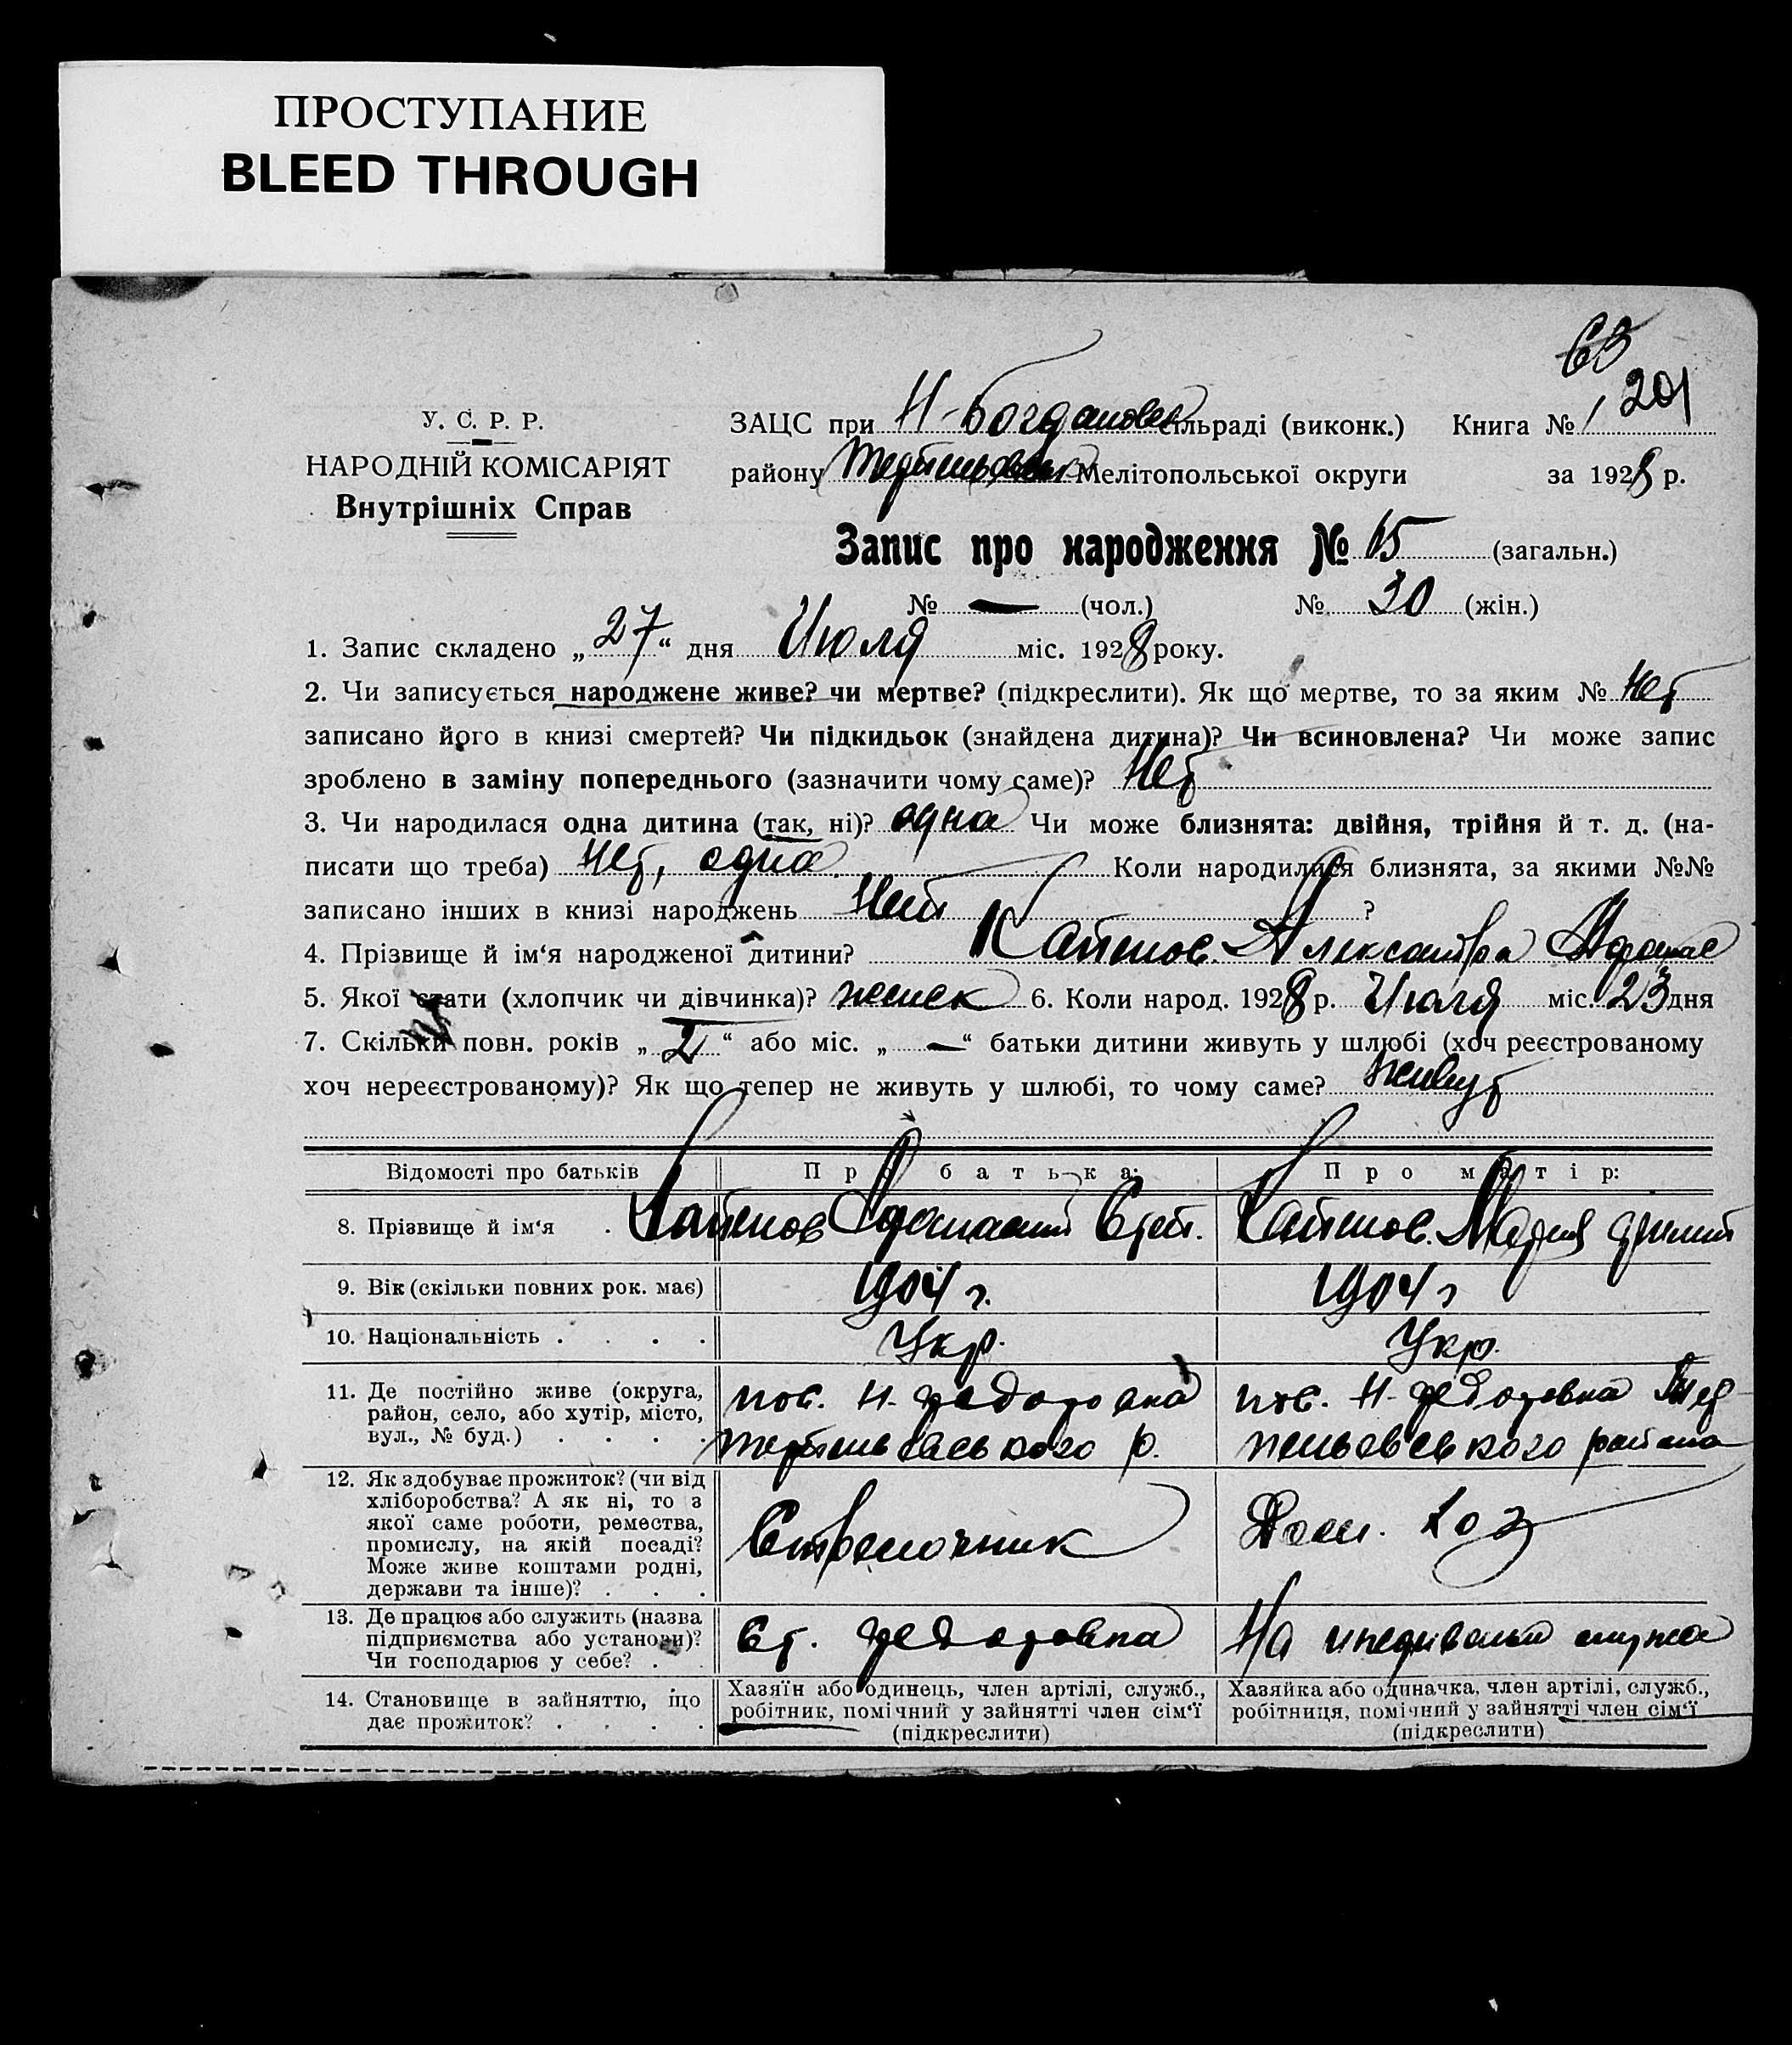 ПРОСТУПАНИЕ
BLEED THROUGH
63
201
У. С. Р. Р.
НАРОДНІЙ КОМІСАРІЯТ
Внутрішніх Справ
ЗАЦС при Н-Богдановск сільраді (виконк.) Книга № 1
району Мелітопольської округи за 1928 р.
Запис про народження № 65 (загальн.)
№ — (чол.) № 30 (жін.)
1. Запис складено „27“ дня Июля міс. 1928 року.
2. Чи записується народжене живе? чи мертве? (підкреслити). Як що мертве, то за яким № Нет
записано його в книзі смертей? Чи підкидьок (знайдена дитина)? Чи всиновлена? Чи може запис
зроблено в заміну попереднього (зазначити чому саме)? Нет
3. Чи народилася одна дитина (так, ні)? одна Чи може близнята: двійня, трійня й т. д. (на-
писати що треба) Нет, одна Коли народилися близнята, за якими №№
записано інших в книзі народжень Нет ?
4. Прізвище й ім‘я народженої дитини? Александра
5. Якої стати (хлопчик чи дівчинка)? женск 6. Коли народ. 1928 р. Июля міс. 23 дня
7. Скільки повн. років „2“ або міс. „—“ батьки дитини живуть у шлюбі (хоч реєстрованому
хоч нереєстрованому)? Як що тепер не живуть у шлюбі, то чому саме? живут
Відомості про батьків Про батька: Про матір:
8. Прізвище й ім‘я . Афанасий Мария
9. Вік (скільки повних рок. має) 1904 г. 1904 г
10. Національність . . . . Укр. Укр.
11. Де постійно живе (округа,
район, село, або хутір, місто,
вул., № буд.) . . . .
пос. Н-Федоровка
р.
пос. Н-Федоровка
района
12. Як здобуває прожиток? (чи від
хліборобства? А як ні, то з
якої саме роботи, ремества,
промислу, на якій посаді?
Може живе коштами родні,
держави та інше)? . . .
Стрелочник
Дом. хоз
13. Де працює або служить (назва
підприємства або установи)?
Чи господарює у себе? . .
Ст. Федоровка
На иждивении мужа
14. Становище в зайняттю, що
дає прожиток? . . . .
Хазяїн або одинець, член артілі, служб.,
робітник, помічний у зайнятті член сім‘ї
(підкреслити)
Хазяйка або одиначка, член артілі, служб.,
робітниця, помічний у зайнятті член сім‘ї
(підкреслити)